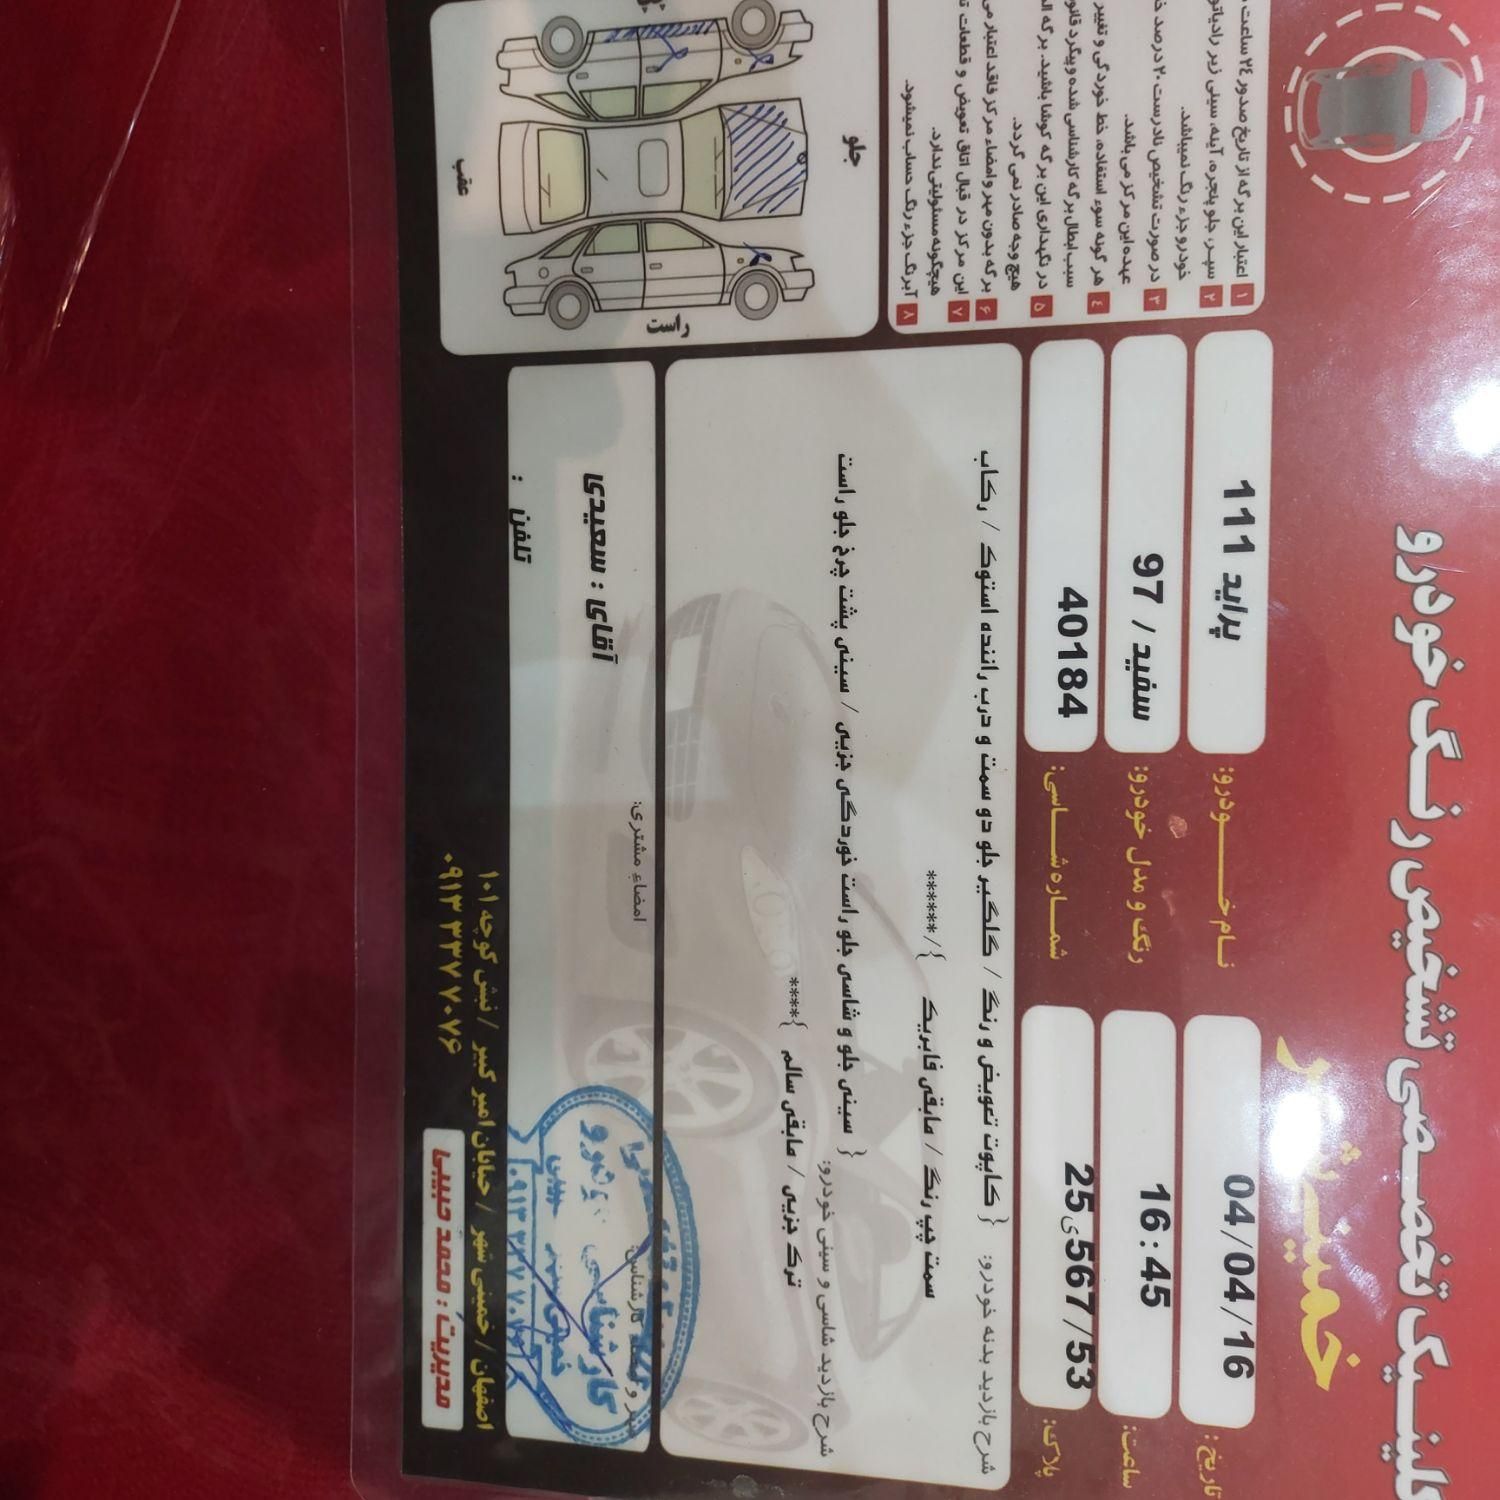 کلینیک تخصصی تشخیص رنگ خودرو
خمینی شهر
تاریخ: 04/04/16
ساعت: 16:45
پلاک: 25ی567/53
نام خودرو: پراید 111
رنگ و مدل خودرو: سفید / 97
شماره شاسی: 40184
۱ اعتبار این برگه از تاریخ صدور ۲۴ ساعت
۲ سپر، جلو پنجره، آینه، سینی زیر رادیاتور
خودرو جزء رنگ نمیباشد.
۳ در صورت تشخیص نادرست ۲۰ درصد
عهده این مرکز می باشد.
۴ هر گونه سوء استفاده، خط خوردگی و تغییر
سبب ابطال برگه کارشناسی شده و پیگرد
۵ در نگهداری این برگه کوشا باشید. برگه
هیچ وجه صادر نمی گردد.
۶ برگه بدون مهر و امضاء مرکز فاقد اعتبار
۷ این مرکز در قبال اتاق تعویض و قطعات
هیچگونه مسئولیتی ندارد.
۸ آبرنگ جزء رنگ حساب نمیشود.
شرح بازدید بدنه خودرو: { کاپوت تعویض و رنگ / گلگیر جلو دو سمت و درب راننده استوک / رکاب
سمت چپ رنگ / مابقی فابریک }/*****
شرح بازدید شاسی و سینی خودرو: { سینی جلو و شاسی جلو راست خوردگی جزیی / سینی پشت چرخ جلو راست
ترک جزیی / مابقی سالم }****
جلو
عقب
راست
مهر و امضاء کارشناس:
کارشناسی خودرو
خمینی شهر
امضاء مشتری:
آقای : سعیدی
تلفن :
اصفهان / خمینی شهر / خیابان امیر کبیر / نبش کوچه ۱۰۱
۰۹۱۳ ۳۳۷ ۷۰ ۷۶
مدیریت : محمد حبیبی